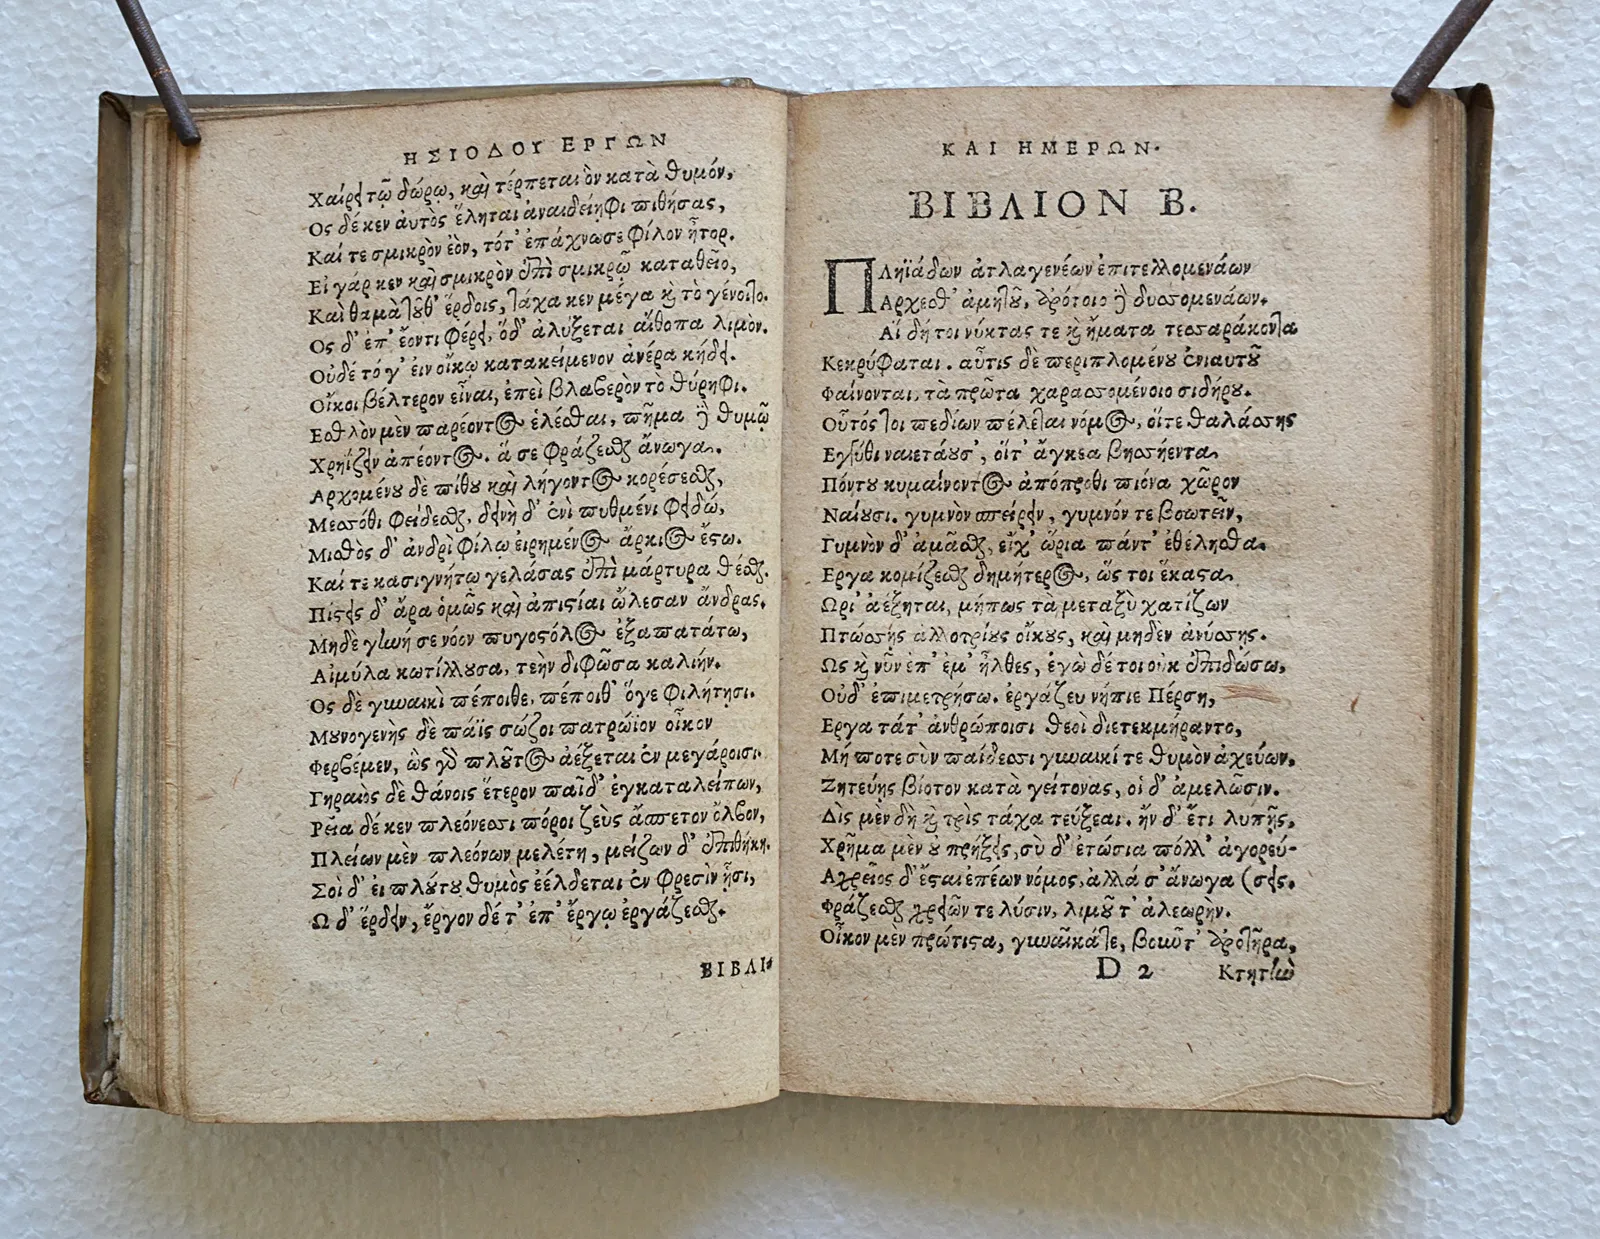 ΗΣΙΟΔΟΥ ΕΡΓΩΝ
Χαίρει τῷ δώρῳ, καὶ τέρπεται ὃν κατὰ θυμόν,
Ος δέ κεν ἀυτὸς ἕληται ἀναιδείηφι πιθήσας,
Καί τε σμικρὸν ἐὸν, τότ' ἐπάχνωσε φίλον ἦτορ.
Εἰ γάρ κεν καὶ σμικρὸν ἐπὶ σμικρῷ καταθεῖο,
Καὶ θαμὰ τοῦθ' ἕρδοις, τάχα κεν μέγα καὶ τὸ γένοιτο.
Ος δ' ἐπ' ἐόντι φέρει, ὅδ' ἀλύξεται αἴθοπα λιμόν.
Οὐδέ τό γ' ἐιν οἴκῳ κατακείμενον ἀνέρα κήδει.
Οἴκοι βέλτερον εἶναι, ἐπεὶ βλαβερὸν τὸ θύρηφι.
Εσθλὸν μὲν παρέοντος ἑλέσθαι, πῆμα δὲ θυμῷ
Χρηίζειν ἀπέοντος. ἅ σε φράζεσθαι ἄνωγα.
Αρχομένου δὲ πίθου καὶ λήγοντος κορέσεσθαι,
Μεσσόθι φείδεσθαι, δεινὴ δ' ἐνὶ πυθμένι φειδώ,
Μισθὸς δ' ἀνδρὶ φίλῳ ειρημένος ἄρκιος ἔστω.
Καί τε κασιγνήτῳ γελάσας ἐπὶ μάρτυρα θέσθαι.
Πίστεις δ' ἄρα ὁμῶς καὶ ἀπιστίαι ὤλεσαν ἄνδρας.
Μηδὲ γυνή σε νόον πυγοστόλος ἐξαπατάτω,
Αἱμύλα κωτίλλουσα, τεὴν διφῶσα καλιήν.
Ος δὲ γυναικὶ πέποιθε, πέποιθ' ὅγε φιλήτῃσι.
Μουνογενὴς δὲ πάϊς σώζοι πατρώϊον οἶκον
Φερβέμεν, ὣς γὰρ πλοῦτος ἀέξεται ἐν μεγάροισι.
Γηραιὸς δὲ θάνοις ἕτερον παῖδ' ἐγκαταλείπων,
Ρεῖα δέ κεν πλεόνεσσι πόροι ζεὺς ἄσπετον ὄλβον,
Πλείων μὲν πλεόνων μελέτη, μείζων δ' ἐπιθήκη.
Σοὶ δ' ἐι πλούτου θυμὸς ἐέλδεται ἐν φρεσὶν ᾗσι,
Ω δ' ἕρδειν, ἔργον δέ τ' ἐπ' ἔργῳ ἐργάζεσθαι.
ΒΙΒΛΙ
ΚΑΙ ΗΜΕΡΩΝ.
ΒΙΒΛΙΟΝ Β.
ΠΛηϊάδων ἀτλαγενέων ἐπιτελλομενάων
Αρχεσθ' ἀμητοῦ, ἀρότοιο δὲ δυσσομενάων.
Αἱ δή τοι νύκτας τε καὶ ἤματα τεσσαράκοντα
Κεκρύφαται. αὖτις δὲ περιπλομένου ἐνιαυτοῦ
Φαίνονται, τὰ πρῶτα χαρασσομένοιο σιδήρου.
Οὗτός τοι πεδίων πέλεται νόμος, οἵτε θαλάσσης
Εγγύθι ναιετάουσ', οἵτ' ἄγκεα βησσήεντα
Πόντου κυμαίνοντος ἀπόπροθι πιόνα χῶρον
Ναίουσι. γυμνὸν σπείρειν, γυμνόν τε βοωτεῖν,
Γυμνὸν δ' ἀμᾶσθαι, εἴχ' ὥρια πάντ' ἐθέλησθα.
Εργα κομίζεσθαι δημήτερος, ὥς τοι ἕκαστα
Ωρι' ἀέξηται, μήπως τὰ μεταξὺ χατίζων
Πτώσσῃς ἀλλοτρίους οἴκους, καὶ μηδὲν ἀνύσσῃς.
Ως καὶ νῦν ἐπ' ἐμ' ἦλθες, ἐγὼ δέ τοι οὐκ ἐπιδώσω,
Οὐδ' ἐπιμετρήσω. ἐργάζευ νήπιε Πέρση,
Εργα τάτ' ἀνθρώποισι θεοὶ διετεκμήραντο,
Μή ποτε σὺν παίδεσσι γυναικί τε θυμὸν ἀχεύων,
Ζητεύῃς βίοτον κατὰ γείτονας, οἱ δ' ἀμελῶσιν.
Δὶς μὲν δὴ καὶ τρὶς τάχα τεύξεαι. ἢν δ' ἔτι λυπῇς,
Χρῆμα μὲν οὐ πρήξεις, σὺ δ' ἐτώσια πόλλ' ἀγορεύ-
Αχρεῖος δ' ἔσται ἐπέων νόμος, ἀλλά σ' ἄνωγα (σεις.
Φράζεσθαι χρειῶν τε λύσιν, λιμοῦ τ' ἀλεωρὴν.
Οἶκον μὲν πρώτιστα, γυναῖκά τε, βοῦν τ' ἀροτῆρα,
D 2 Κτητὴν